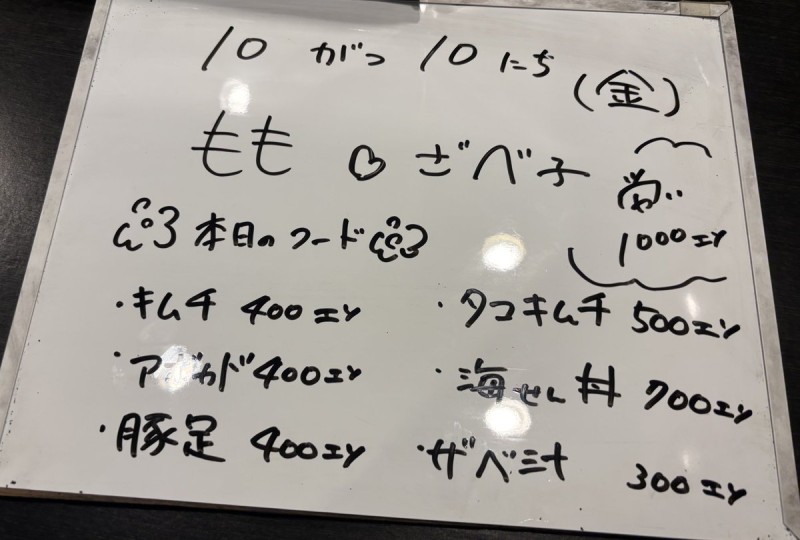 10 がつ 10 にち (金)
もも ♡ ざべ子
1000エン
本日のフード
・キムチ 400エン
・タコキムチ 500エン
・アボカド 400エン
・海せん丼 700エン
・豚足 400エン
・ザベ汁 300エン